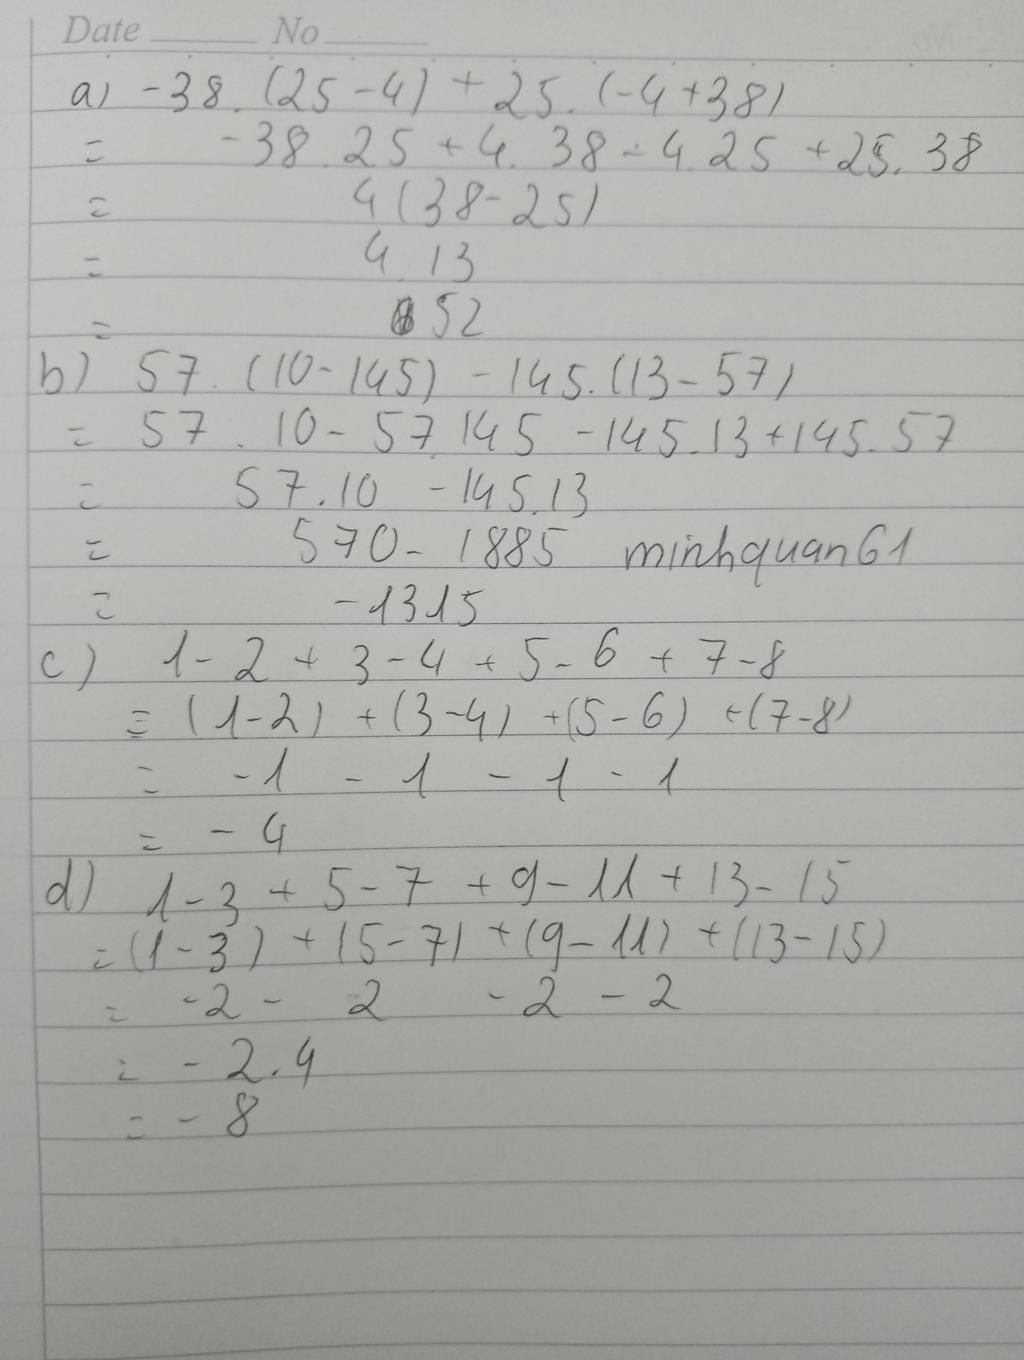 Date No
a) -38.(25-4) + 25.(-4+38)
= -38.25 + 4.38 - 4.25 + 25.38
= 4(38-25)
= 4.13
= 52
b) 57.(10-145) - 145.(13-57)
= 57.10 - 57.145 - 145.13 + 145.57
= 57.10 - 145.13
= 570 - 1885 minhquan61
= -1315
c) 1-2+3-4+5-6+7-8
= (1-2) + (3-4) + (5-6) + (7-8)
= -1 - 1 - 1 - 1
= -4
d) 1-3+5-7+9-11+13-15
= (1-3) + (5-7) + (9-11) + (13-15)
= -2 - 2 - 2 - 2
= -2.4
= -8